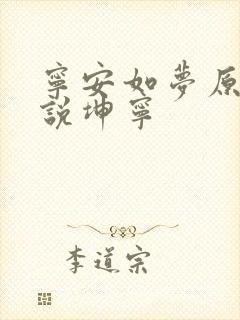 寧安如夢原
說坤寧
李道宗